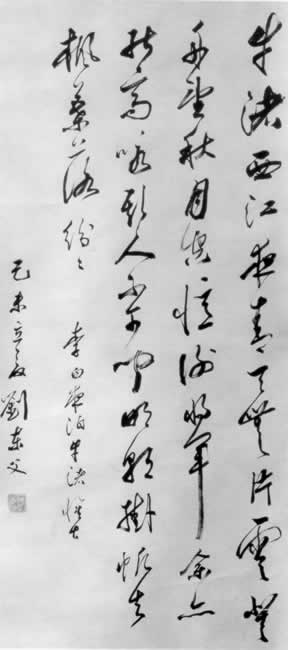 牛渚西江夜青天無片雲登
舟望秋月空憶謝將軍余亦
能高咏斯人不可聞明朝掛帆去
楓葉落紛々
李白夜泊牛渚懷古
己未立夏劉東父